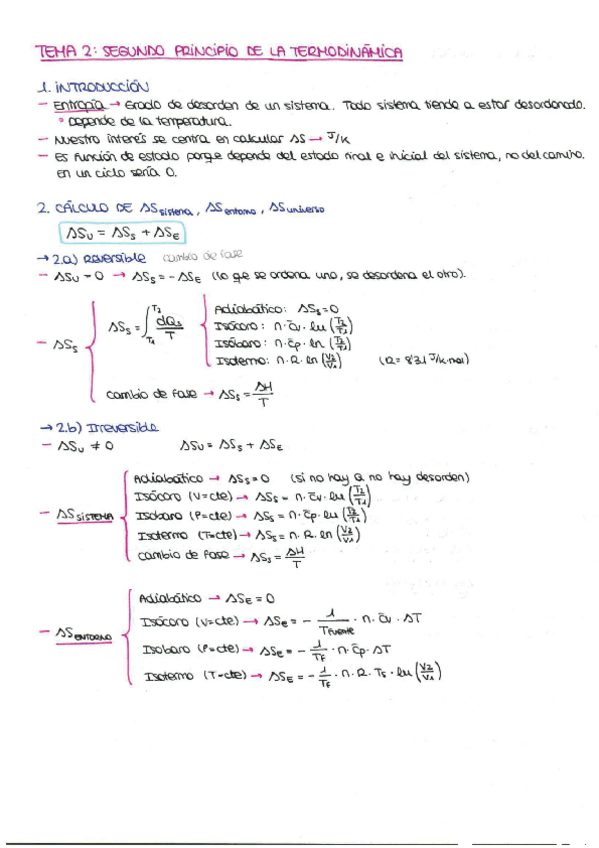 TEMA 2: SEGUNDO PRINCIPIO DE LA TERMODINÁMICA
1. INTRODUCCIÓN
- Entropía → Grado de desorden de un sistema. Todo sistema tiende a estar desordenado.
° Depende de la temperatura.
- Nuestro interés se centra en calcular ΔS → J/K
- Es función de estado porque depende del estado final e inicial del sistema, no del camino.
En un ciclo sería 0.
2. CÁLCULO DE ΔS sistema, ΔS entorno, ΔS universo
ΔSu = ΔSs + ΔSE
→ 2.a) Reversible cambio de fase
- ΔSu = 0 → ΔSs = -ΔSE (lo que se ordena uno, se desordena el otro).
- ΔSs
ΔSs = ∫T1T2 dQs/T
Adiabático: ΔSs = 0
Isócoro: n · c̄v · ln (T2/T1)
Isóbaro: n · c̄p · ln (T2/T1)
Isotermo: n · R · ln (V2/V1) (R = 8'31 J/k·mol)
Cambio de fase → ΔSs = ΔH/T
→ 2.b) Irreversible
- ΔSu ≠ 0 ΔSu = ΔSs + ΔSE
- ΔS SISTEMA
Adiabático → ΔSs = 0 (si no hay Q no hay desorden)
Isócoro (V=cte) → ΔSs = n · c̄v · ln (T2/T1)
Isobaro (P=cte) → ΔSs = n · c̄p · ln (T2/T1)
Isotermo (T=cte) → ΔSs = n · R · ln (V2/V1)
Cambio de fase → ΔSs = ΔH/T
- ΔS ENTORNO
Adiabático → ΔSE = 0
Isócoro (V=cte) → ΔSE = - 1/TFUENTE · n · c̄v · ΔT
Isobaro (P=cte) → ΔSE = - 1/TF · n · c̄p · ΔT
Isotermo (T=cte) → ΔSE = - 1/TF · n · R · Ts · ln (V2/V1)